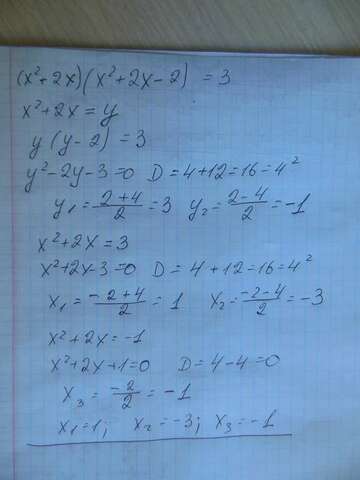 (x²+2x)(x²+2x-2) = 3
x²+2x=y
y(y-2)=3
y²-2y-3=0 D=4+12=16=4²
y₁=(2+4)/2=3 y₂=(2-4)/2=-1
x²+2x=3
x²+2x-3=0 D=4+12=16=4²
x₁=(-2+4)/2=1 x₂=(-2-4)/2=-3
x²+2x=-1
x²+2x+1=0 D=4-4=0
x₃=-2/2=-1
x₁=1; x₂=-3; x₃=-1